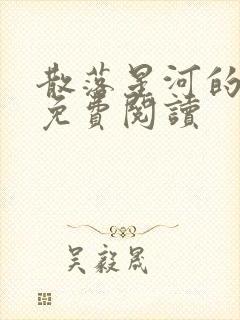 散落星河的
免費閱讀
吴毅晟